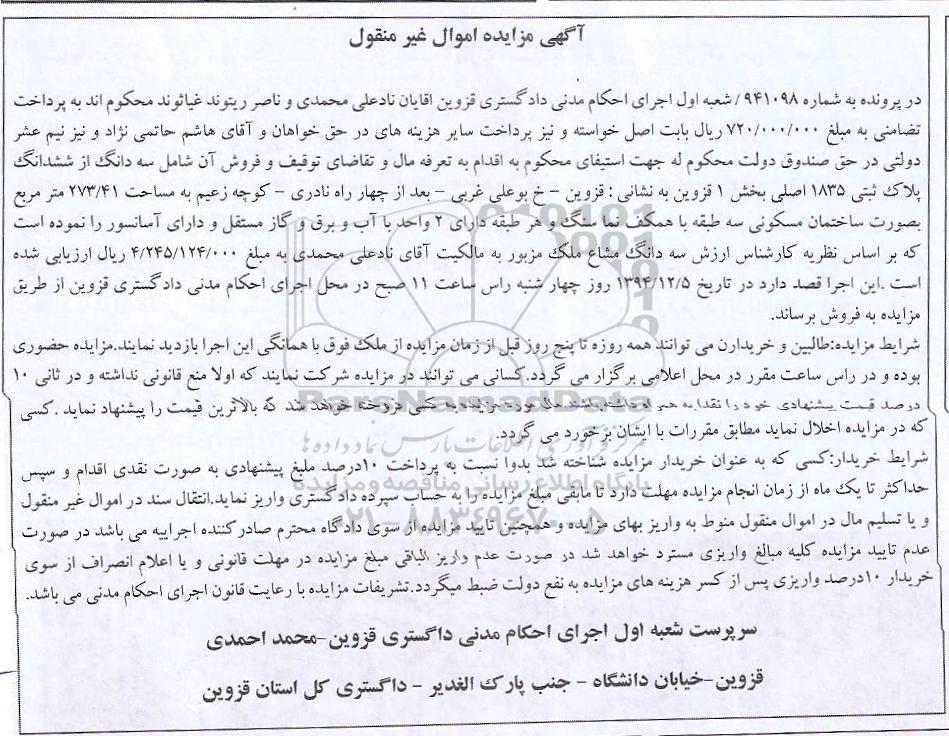 آگهی مزایده اموال غیر منقول
در پرونده به شماره ۹۴۱۰۹۸ / شعبه اول اجرای احکام مدنی دادگستری قزوین اقایان نادعلی محمدی و ناصر ریتوند غیاثوند محکوم اند به پرداخت
تضامنی به مبلغ ۷۲۰/۰۰۰/۰۰۰ ریال بابت اصل خواسته و نیز پرداخت سایر هزینه های در حق خواهان و آقای هاشم حاتمی نژاد و نیز نیم عشر
دولتی در حق صندوق دولت محکوم له جهت استیفای محکوم به اقدام به تعرفه مال و تقاضای توقیف و فروش آن شامل سه دانگ از ششدانگ
پلاک ثبتی ۱۸۳۵ اصلی بخش ۱ قزوین به نشانی : قزوین – خ بوعلی غربی – بعد از چهار راه نادری – کوچه زعیم به مساحت ۲۷۳/۴۱ متر مربع
بصورت ساختمان مسکونی سه طبقه با همکف نما سنگ و هر طبقه دارای ۲ واحد با آب و برق و گاز مستقل و دارای آسانسور را نموده است
که بر اساس نظریه کارشناس ارزش سه دانگ مشاع ملک مزبور به مالکیت آقای نادعلی محمدی به مبلغ ۴/۲۴۵/۱۲۴/۰۰۰ ریال ارزیابی شده
است .این اجرا قصد دارد در تاریخ ۱۳۹۴/۱۲/۵ روز چهار شنبه راس ساعت ۱۱ صبح در محل اجرای احکام مدنی دادگستری قزوین از طریق
مزایده به فروش برساند.
شرایط مزایده:طالبین و خریدارن می توانند همه روزه تا پنج روز قبل از زمان مزایده از ملک فوق با همانگی این اجرا بازدید نمایند.مزایده حضوری
بوده و در راس ساعت مقرر در محل اعلامی برگزار می گردد.کسانی می توانند در مزایده شرکت نمایند که اولا منع قانونی نداشته و در ثانی ۱۰
درصد قیمت پیشنهادی خود را نقدا به همراه داشته باشند فروخته خواهد شد که بالاترین قیمت را پیشنهاد نماید .کسی
که در مزایده اخلال نماید مطابق مقررات با ایشان برخورد می گردد.
شرایط خریدار:کسی که به عنوان خریدار مزایده شناخته شد بدوا نسبت به پرداخت ۱۰درصد ملبغ پیشنهادی به صورت نقدی اقدام و سپس
حداکثر تا یک ماه از زمان انجام مزایده مهلت دارد تا مابقی مبلغ مزایده را به حساب سپرده دادگستری واریز نماید.انتقال سند در اموال غیر منقول
و یا تسلیم مال در اموال منقول منوط به واریز بهای مزایده و همچنین تایید مزایده از سوی دادگاه محترم صادر کننده اجراییه می باشد در صورت
عدم تایید مزایده کلیه مبالغ واریزی مسترد خواهد شد در صورت عدم واریز الباقی مبلغ مزایده در مهلت قانونی و یا اعلام انصراف از سوی
خریدار ۱۰درصد واریزی پس از کسر هزینه های مزایده به نفع دولت ضبط میگردد.تشریفات مزایده با رعایت قانون اجرای احکام مدنی می باشد.
سرپرست شعبه اول اجرای احکام مدنی داگستری قزوین-محمد احمدی
قزوین-خیابان دانشگاه – جنب پارک الغدیر – داگستری کل استان قزوین
ParsNamadData
مرکز فرآوری اطلاعات پارس نماد داده‌ها
پایگاه اطلاع رسانی مناقصه و مزایده
۰۲۱-۸۸۳۴۹۶۷۰-۵